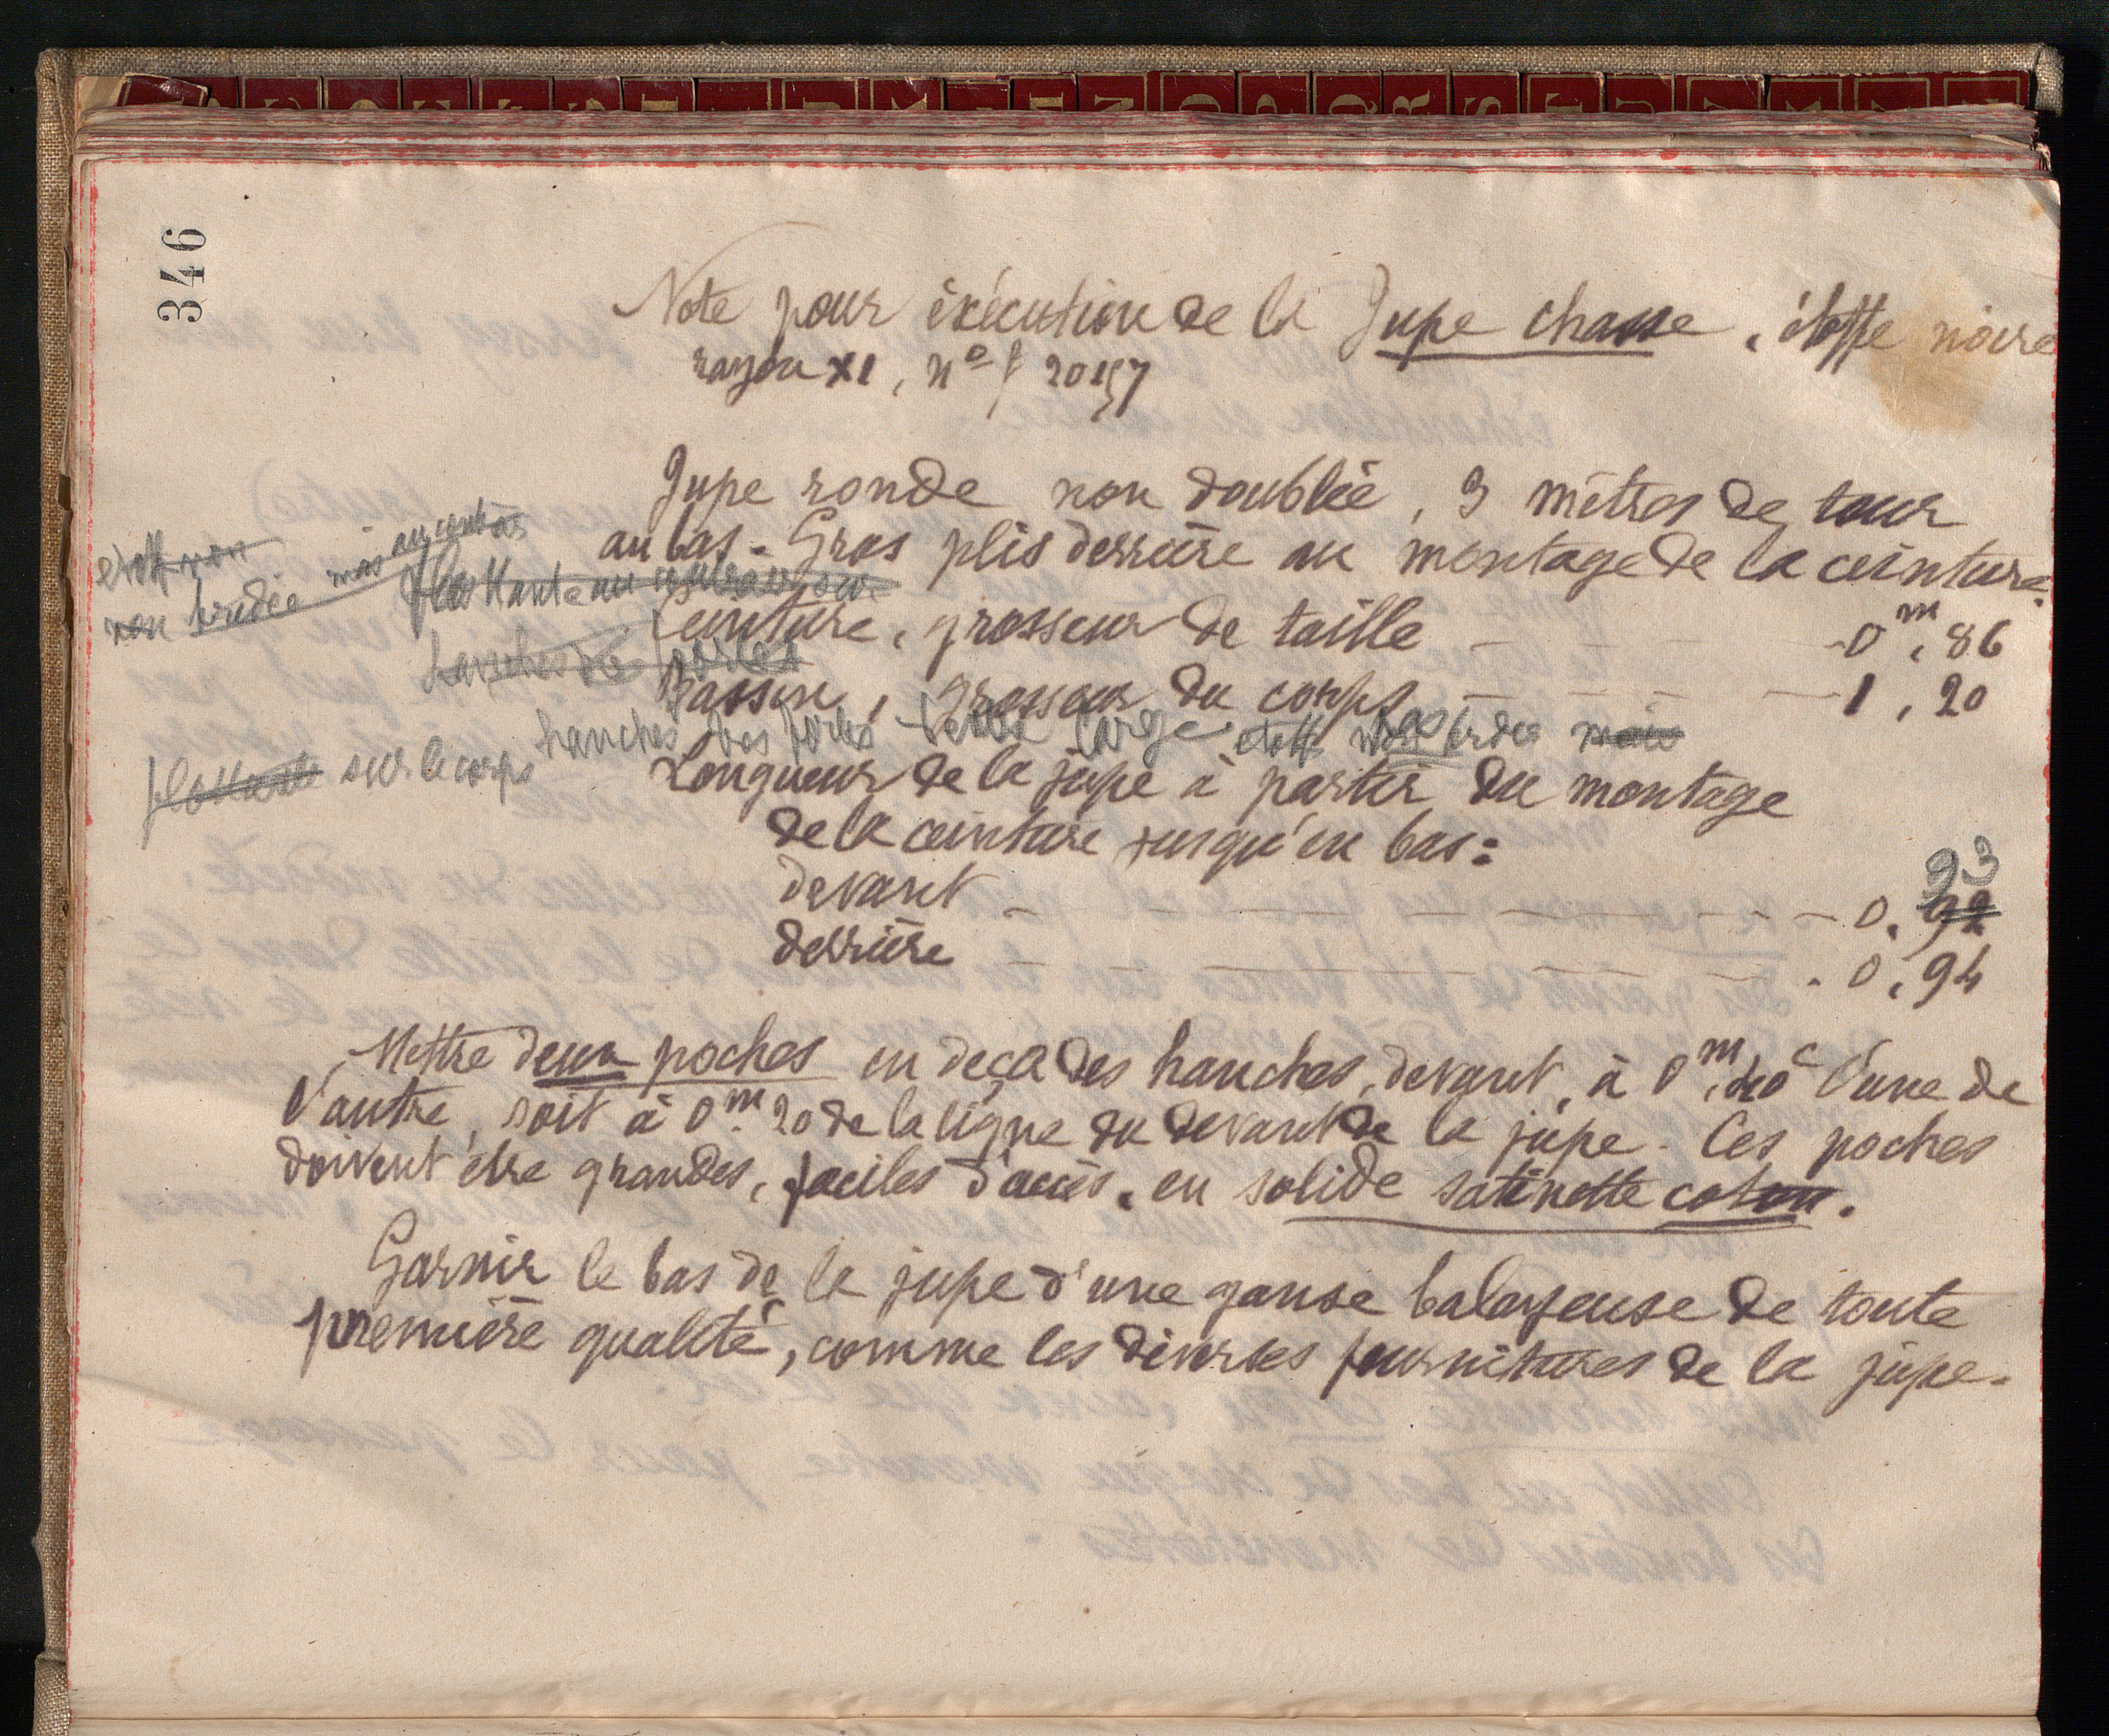 346
Note pour éxécution de la Jupe chasse, étoffe noire
rayon XI, No 20157
Jupe ronde non doublée, 3 mètres de tour
au bas - Gros plis derrière au montage de la ceinture.
étoff non
non bridée mais au contraire
flottante au contraire sur
Ceinture, grosseur de taille - - - 0m, 86
hanches des fortes
Bassin, grosseur du corps - - - 1, 20
hanches des fortes tenir large étoff non bridée mais
flottante sur le corps
Longueur de la jupe à partir du montage
de la ceinture jusqu'en bas :
devant - - - 0, 92 93
derrière - - - 0, 94
Mettre deux poches en deça des hanches, devant, à 0m,40c l'une de
l'autre, soit à 0m. 20 de la ligne du devant de la jupe - Ces poches
doivent être grandes, faciles d'accès, en solide satinette coton.
Garnir le bas de la jupe d'une ganse balayeuse de toute
première qualité, comme les diverses fournitures de la jupe.